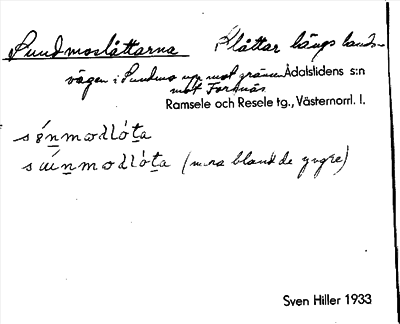 Sundmoslåttarna Slåttar längs lands-
vägen i Sundmo upp mot gränsen Ådalslidens s:n
mot Forsnäs
Ramsele och Resele tg., Västernorrl. l.
(mera bland de yngre)
Sven Hiller 1933